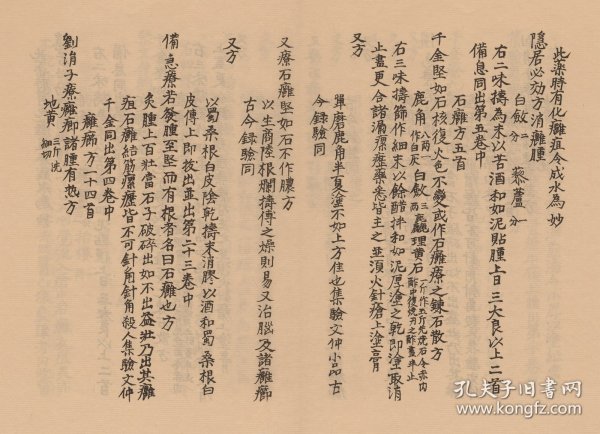 此藥時有化癰疽令成水為妙
隱居必効方消癰腫
白蘞二分 藜蘆一分
右二味擣為末以苦酒和如泥貼腫上日三大良以上二首
備急同出第五卷中
石癰方五首
千金堅如石核復大色不變又或作石癰療之鍊石散方
鹿角八兩作白灰 白蘞三兩 麁理黃石一斤
右三味擣篩作細末以餘醋拌和如泥厚塗之乾即塗取消
止盡更合諸漏瘰癧藥悉皆主之並須火針瘡上塗膏
又方
單磨鹿角半夏塗不如上方佳也集驗文仲小品古
今錄驗同
又療石癰堅如石不作膿方
以生商陸根爛擣傅之燥則易又治腦及諸癰癤
古今錄驗同
又方
以蜀桑根白皮陰乾擣末消膠以酒和蜀桑根白
皮傅上即拔出並出第二十三卷中
備急療若發腫至堅而有根者名曰石癰也方
灸腫上百壯當石子破碎出如不出益壯乃出其癰
疽石癰結筋瘰癧皆不可針角針角殺人集驗文仲
千金同出第四卷中
癰癤方一十四首
劉涓子療癰癤諸腫有熱方
地黃三斤洗細切
孔夫子旧书网
www.kongfz.com